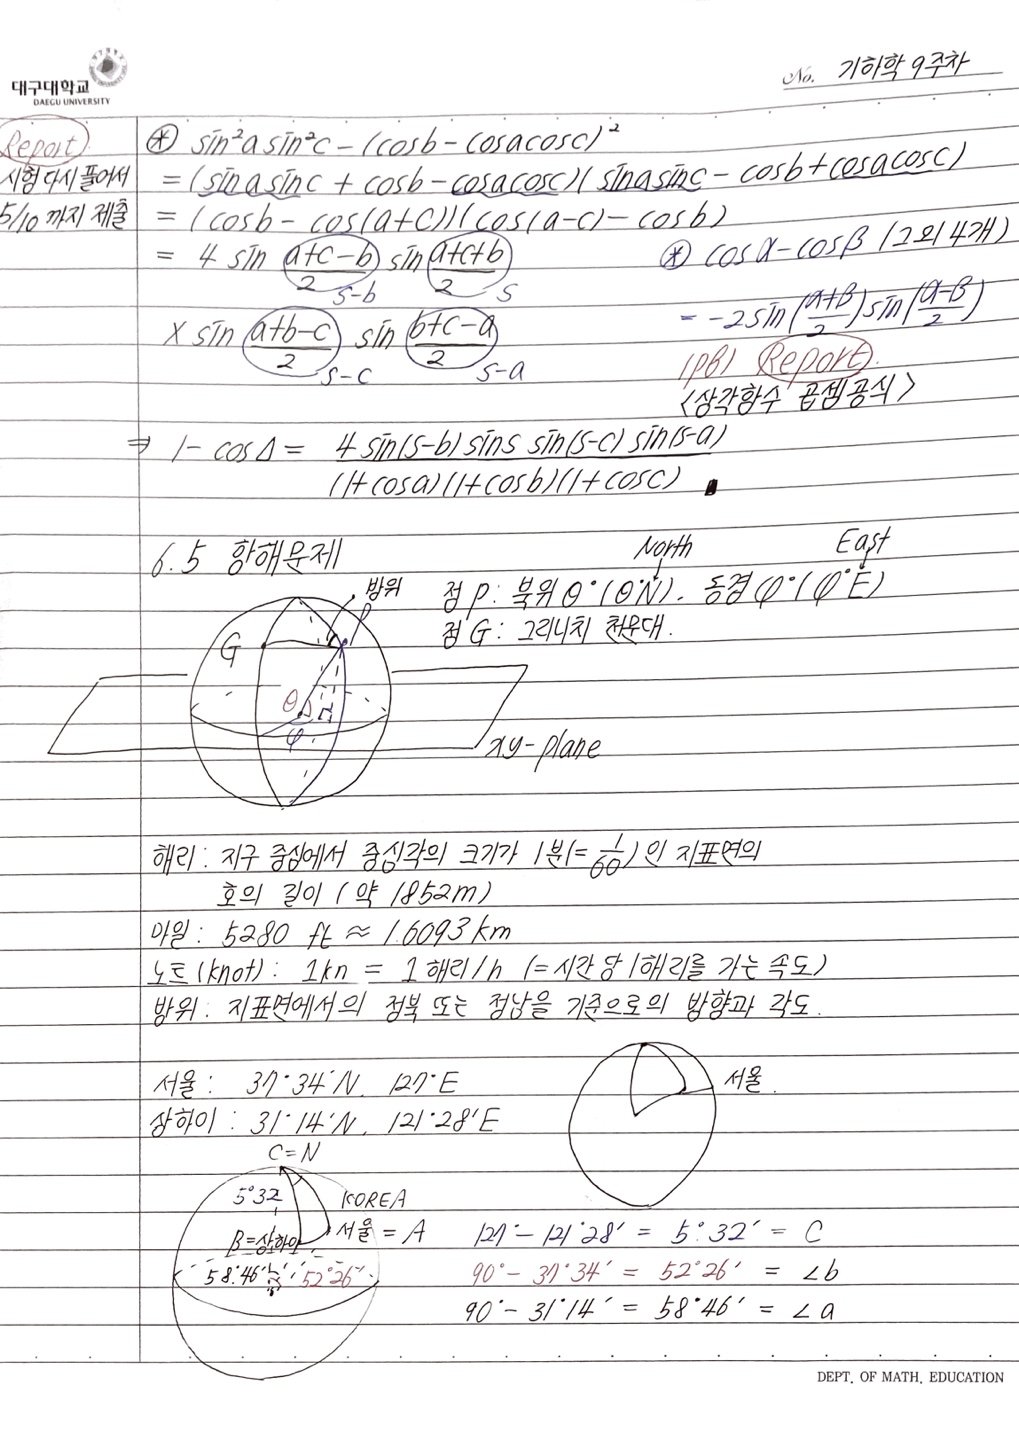 대구대학교
DAEGU UNIVERSITY
No. 기하학 9주차
Report
시험 다시 풀어서
5/10 까지 제출
⊛ sin²a sin²c - (cosb - cosacosc)²
= (sinasinc + cosb - cosacosc)(sinasinc - cosb + cosacosc)
= (cosb - cos(a+c))(cos(a-c) - cosb)
= 4 sin (a+c-b)/2 sin (a+c+b)/2
s-b s
× sin (a+b-c)/2 sin (b+c-a)/2
s-c s-a
⊛ cosα - cosβ (그외 4개)
= -2 sin((α+β)/2) sin((α-β)/2)
(p8) Report.
<삼각함수 곱셈공식>
⇒ 1 - cosΔ = 4 sin(s-b) sins sin(s-c) sin(s-a) / (1+cosa)(1+cosb)(1+cosc)
6.5 항해문제
North East
점 P : 북위 θ° (θ°N). 동경 φ° (φ°E)
점 G : 그리니치 천문대.
방위
P
G
θ
φ
xy-plane
해리 : 지구 중심에서 중심각의 크기가 1분(= 1/60)인 지표면의
호의 길이 (약 1852m)
마일 : 5280 ft ≈ 1.6093 km
노트(knot) : 1kn = 1 해리/h (= 시간당 1해리를 가는 속도)
방위 : 지표면에서의 정북 또는 정남을 기준으로의 방향과 각도.
서울 : 37°34'N. 127°E
상하이 : 31°14'N. 121°28'E
서울.
C=N
5°32
KOREA
서울 = A
B=상하이
58°46' 52°26'
127° - 121°28' = 5°32' = C
90° - 37°34' = 52°26' = ∠b
90° - 31°14' = 58°46' = ∠a
DEPT. OF MATH. EDUCATION